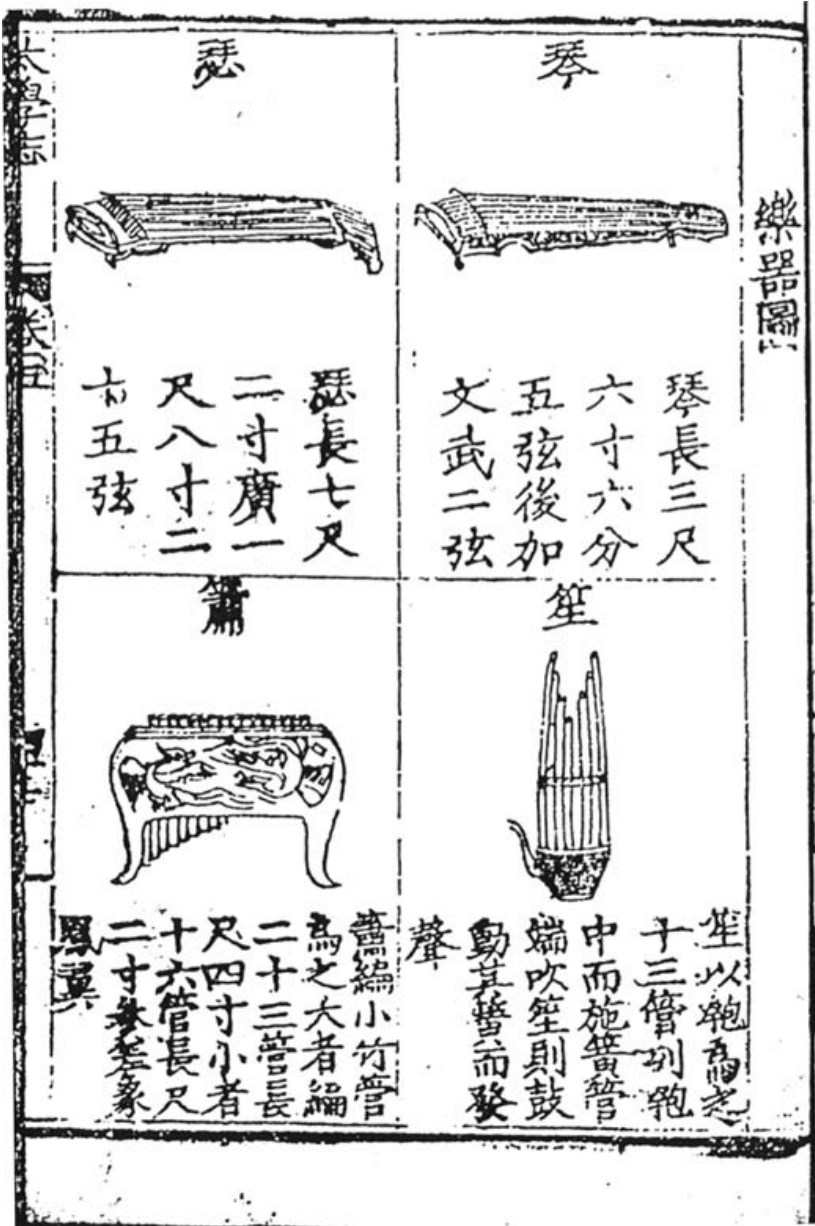 樂器圖
琴
琴長三尺
六寸六分
五弦後加
文武二弦
瑟
瑟長七尺
二寸廣一
尺八寸二
十五弦
笙
笙以匏爲之
十三管列匏
中而施簧管
端吹笙則鼓
動其簧而發
聲
簫
簫編小竹管
爲之大者編
二十三管長
尺四寸小者
十六管長尺
二寸參差象
鳳翼
太學志
卷五